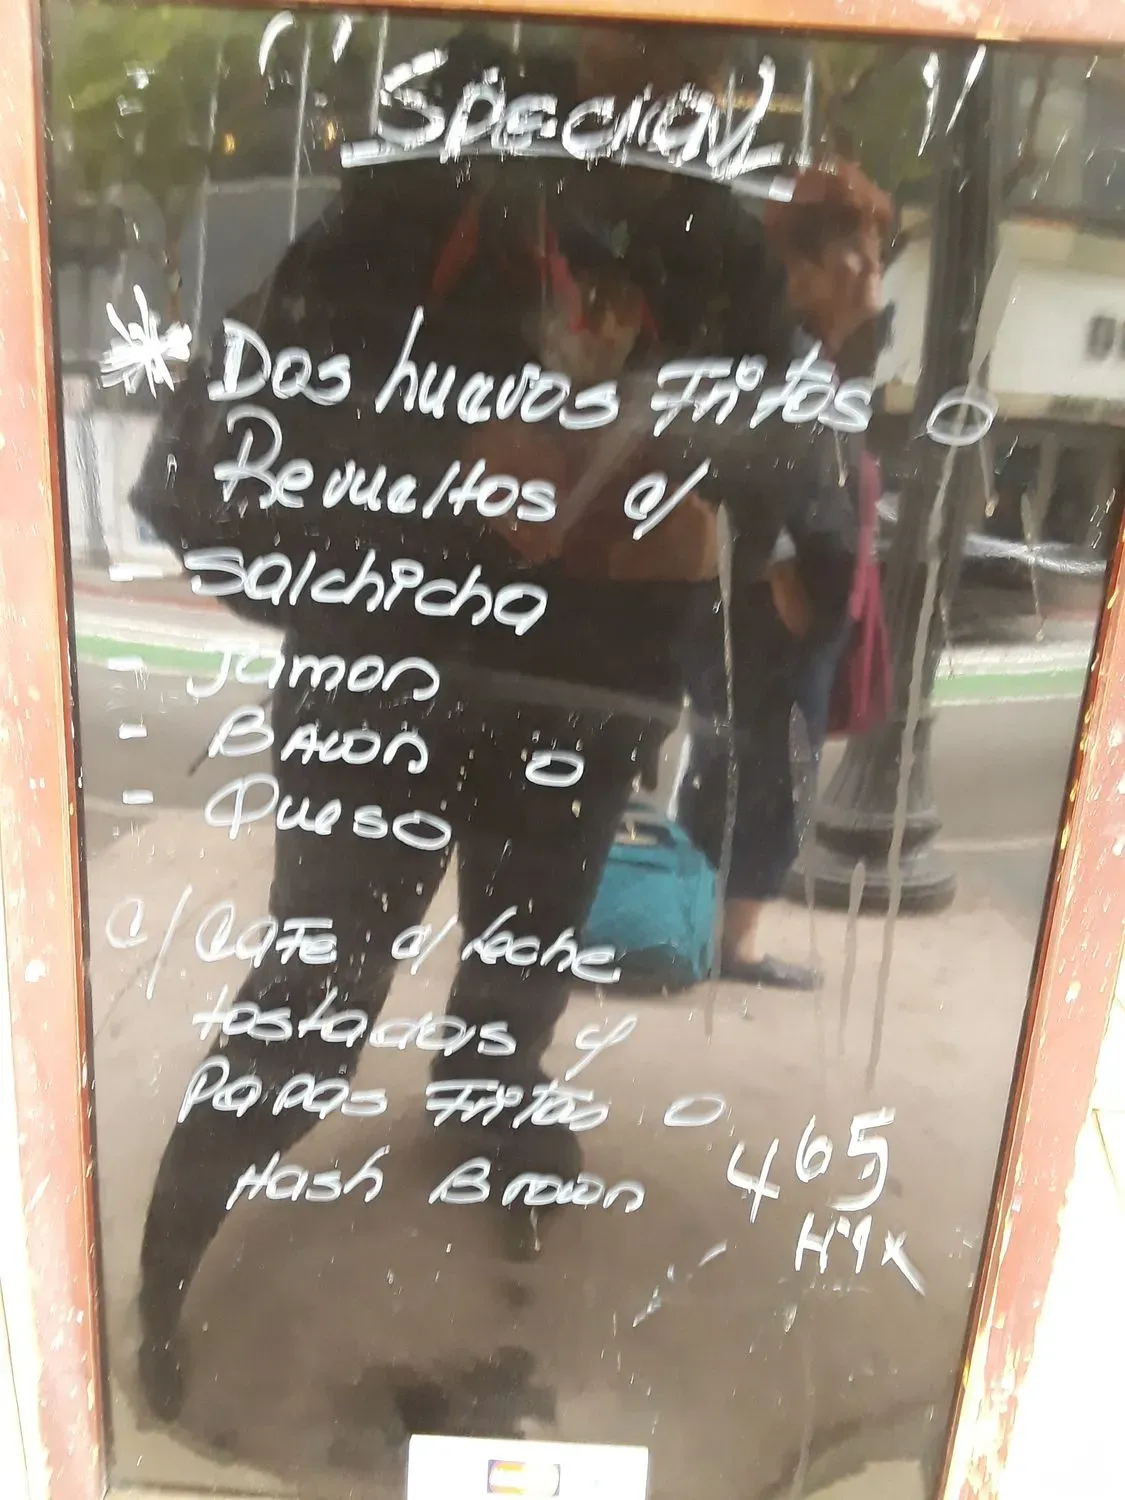 " Special "
* Dos huevos Fritos o
Revueltos c/
- Salchicha
- Jamon
- Bacon o
- Queso
c/ Cafe c/ Leche
tostadas y
Papas Fritas o
Hash Brown 465